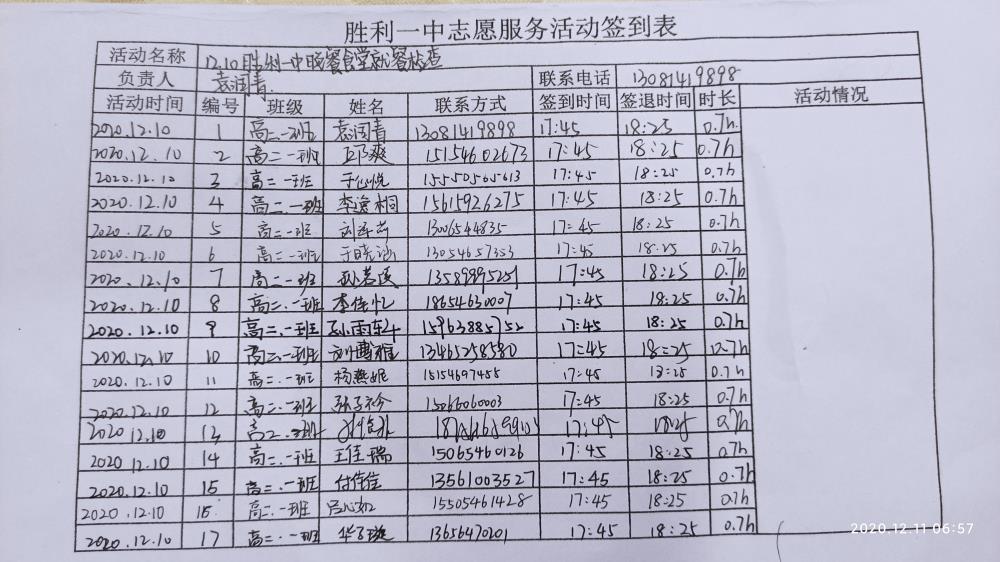 胜利一中志愿服务活动签到表
活动名称 12.10胜利一中晚餐食堂就餐检查
负责人 袁润青 联系电话 13081419898
活动时间 编号 班级 姓名 联系方式 签到时间 签退时间 时长 活动情况
2020.12.10 1 高二一班 袁润青 13081419898 17:45 18:25 0.7h
2020.12.10 2 高二一班 15154602673 17:45 18:25 0.7h
2020.12.10 3 高二一班 于心悦 15550565613 17:45 18:25 0.7h
2020.12.10 4 高二.一班 李逸桐 15615926275 17:45 18:25 0.7h
2020.12.10 5 高二.一班 13006544835 17:45 18:25 0.7h
2020.12.10 6 高二一班 于晓涵 13054657353 17:45 18:25 0.7h
2020.12.10 7 高二一班 13589995251 17:45 18:25 0.7h
2020.12.10 8 高二.一班 李佳忆 18654630007 17:45 18:25 0.7h
2020.12.10 9 高二.一班 15963885752 17:45 18:25 0.7h
2020.12.10 10 高二.一班 13465258580 17:45 18:25 0.7h
2020.12.10 11 高二.一班 杨燕妮 15154697455 17:45 18:25 0.7h
2020.12.10 12 高二.一班 15066060003 17:45 18:25 0.7h
2020.12.10 13 高二.一班 17:45 18:25 0.7h
2020.12.10 14 高二.一班 王佳瑞 15065460126 17:45 18:25 0.7h
2020.12.10 15 高二.一班 付佳佳 13561003527 17:45 18:25 0.7h
2020.12.10 16 高二.一班 吕心如 15505461428 17:45 18:25 0.7h
2020.12.10 17 高二.一班 华子璇 13656470201 17:45 18:25 0.7h
2020.12.11 06:57